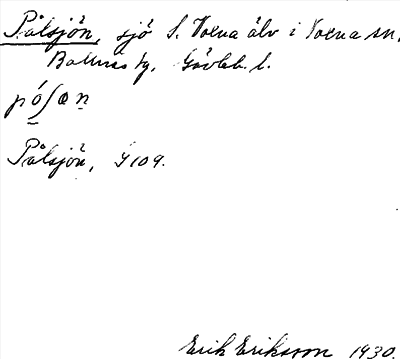 Pålsjön, sjö S. Voxna älv i Voxna sn,
Bollnäs tg. Gävleb. l.
pó̲ʃøn̲
Pålsjön, G 109.
Erik Eriksson 1930.